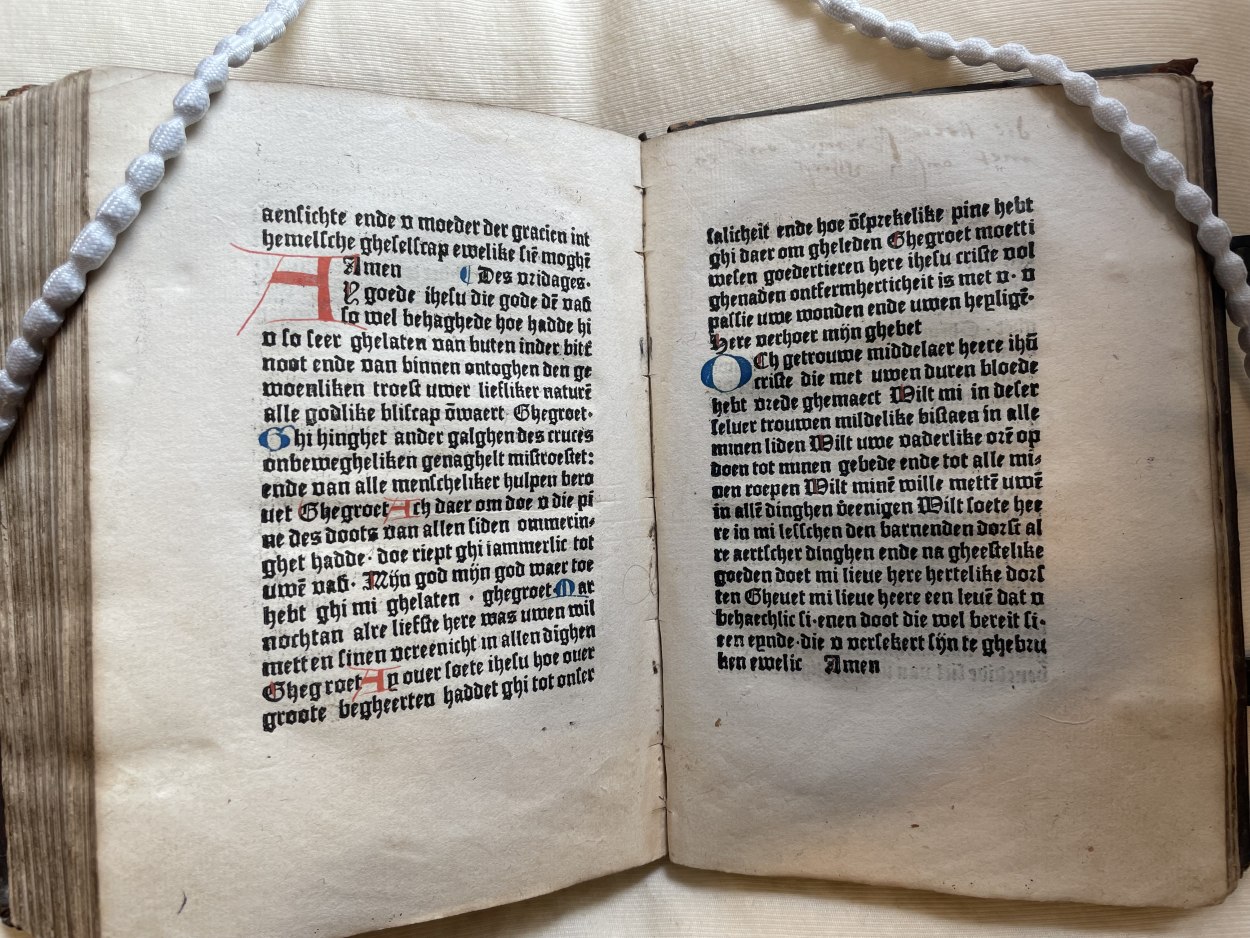 aensichte ende v moeder der gracien int
hemelsche gheselscap ewelike sië moghẽ
Amen ¶ Des vridages.
AY goede ihesu die gode dẽ vad̾
so wel behaghede hoe hadde hi
v so seer ghelaten van buten inder bitt̾
noot ende van binnen ontoghen den ge
woenliken troest uwer liefliker naturẽ
alle godlike bliscap õwaert Ghegroet·
Ghi hinghet ander galghen des cruces
onbewegheliken genaghelt mistroestet:
ende van alle menscheliker hulpen bero
uet Ghegroet Ach daer om doe v die pi
ne des doots van allen siden ommerin⸗
ghet hadde· doe riept ghi iammerlic tot
uwẽ vad̾· Mijn god mijn god waer toe
hebt ghi mi ghelaten · ghegroet Mar
nochtan alre liefste here was uwen wil
metten sinen vereenicht in allen dighen
Ghegroet Ay ouer soete ihesu hoe ouer
groote begheerten haddet ghi tot onser
salicheit ende hoe õsprekelike pine hebt
ghi daer om gheleden Ghegroet moetti
wesen goedertieren here ihesu criste vol
ghenaden ontfermherticheit is met v · v
passie uwe wonden ende uwen heylige̾·
Here verhoer mijn ghebet
OCh getrouwe middelaer heere ihũ
criste die met uwen duren bloede
hebt vrede ghemaect Wilt mi in deser
seluer trouwen mildelike bistaen in alle
minen liden Wilt uwe vaderlike orẽ op
doen tot minen gebede ende tot alle mi⸗
nen roepen Wilt minẽ wille mettẽ uwẽ
in allẽ dinghen v̾eenigen Wilt soete hee
re in mi lesschen den barnenden dorst al
re aertscher dinghen ende na gheestelike
goeden doet mi lieue here hertelike dors
ten Gheuet mi lieue heere een leuẽ dat v
behaechlic si·enen doot die wel bereit si·
een eynde·die v versekert sijn te ghebru
ken ewelic Amen